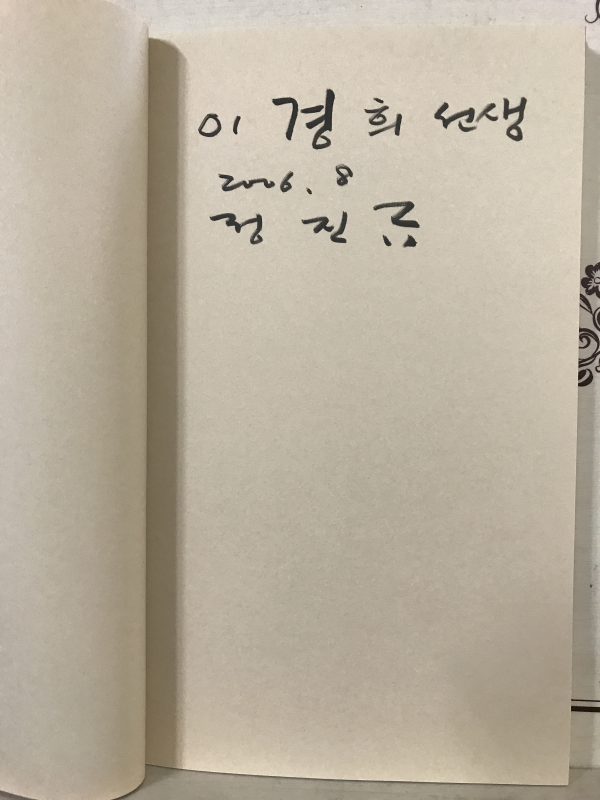 이 경 희 선생
2006. 8
정 진 규